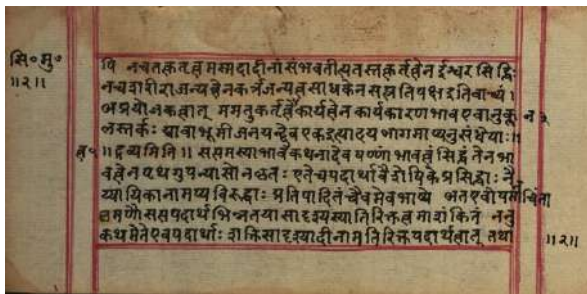 सि॰ मु॰
॥२॥
पि नचतत्कर्तृत्वमस्मदादीनां संभवतीत्यतस्तत्कर्तृत्वेन ईश्वरसिद्धिः
नचशरीराजन्यत्वेनकर्त्रजन्यत्वसाधकेनसत्प्रतिपक्षइतिवाच्यं।
अप्रयोजकत्वात् ममतुकर्तृत्वेकार्यत्वेनकार्यकारणभावएवानुकू
लस्तर्कः द्यावाभूमीजनयन्देवएकइत्यादयआगमाप्यनुसंधेयाः॥
॥द्रव्यमिति॥ सप्तमस्याभावत्वकथनादेवषण्णांभावत्वंसिद्धंतेनभा
वत्वेनपृथगुपन्यासोनकृतः एतेचपदार्थावैशेषिकेप्रसिद्धाः नै
य्यायिकानामप्यविरुद्धाः प्रतिपादितंचैवमेवभाष्ये अतएवोपमानचिंता
मणौसप्तपदार्थभिन्नतयासादृश्यस्यातिरिक्तत्वमाशंकितं ननु
कथमेतेएवपदार्थाः शक्तिसादृश्यादीनामतिरिक्तपदार्थत्वात् तथा
॥२॥